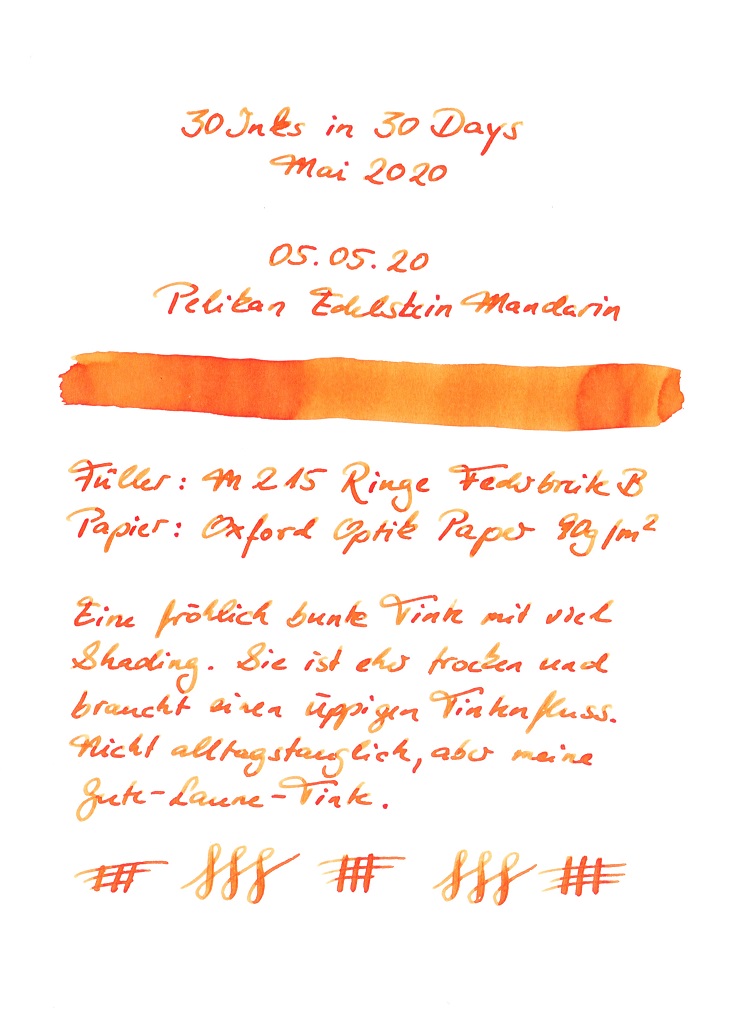 30 Inks in 30 Days
Mai 2020
05.05.20
Pelikan Edelstein Mandarin
Füller: M 215 Ringe Federbreite B
Papier: Oxford Optik Paper 90g/m²
Eine fröhlich bunte Tinte mit viel
Shading. Sie ist eher trocken und
braucht einen üppigen Tintenfluss.
Nicht alltagstauglich, aber meine
Gute-Laune-Tinte.